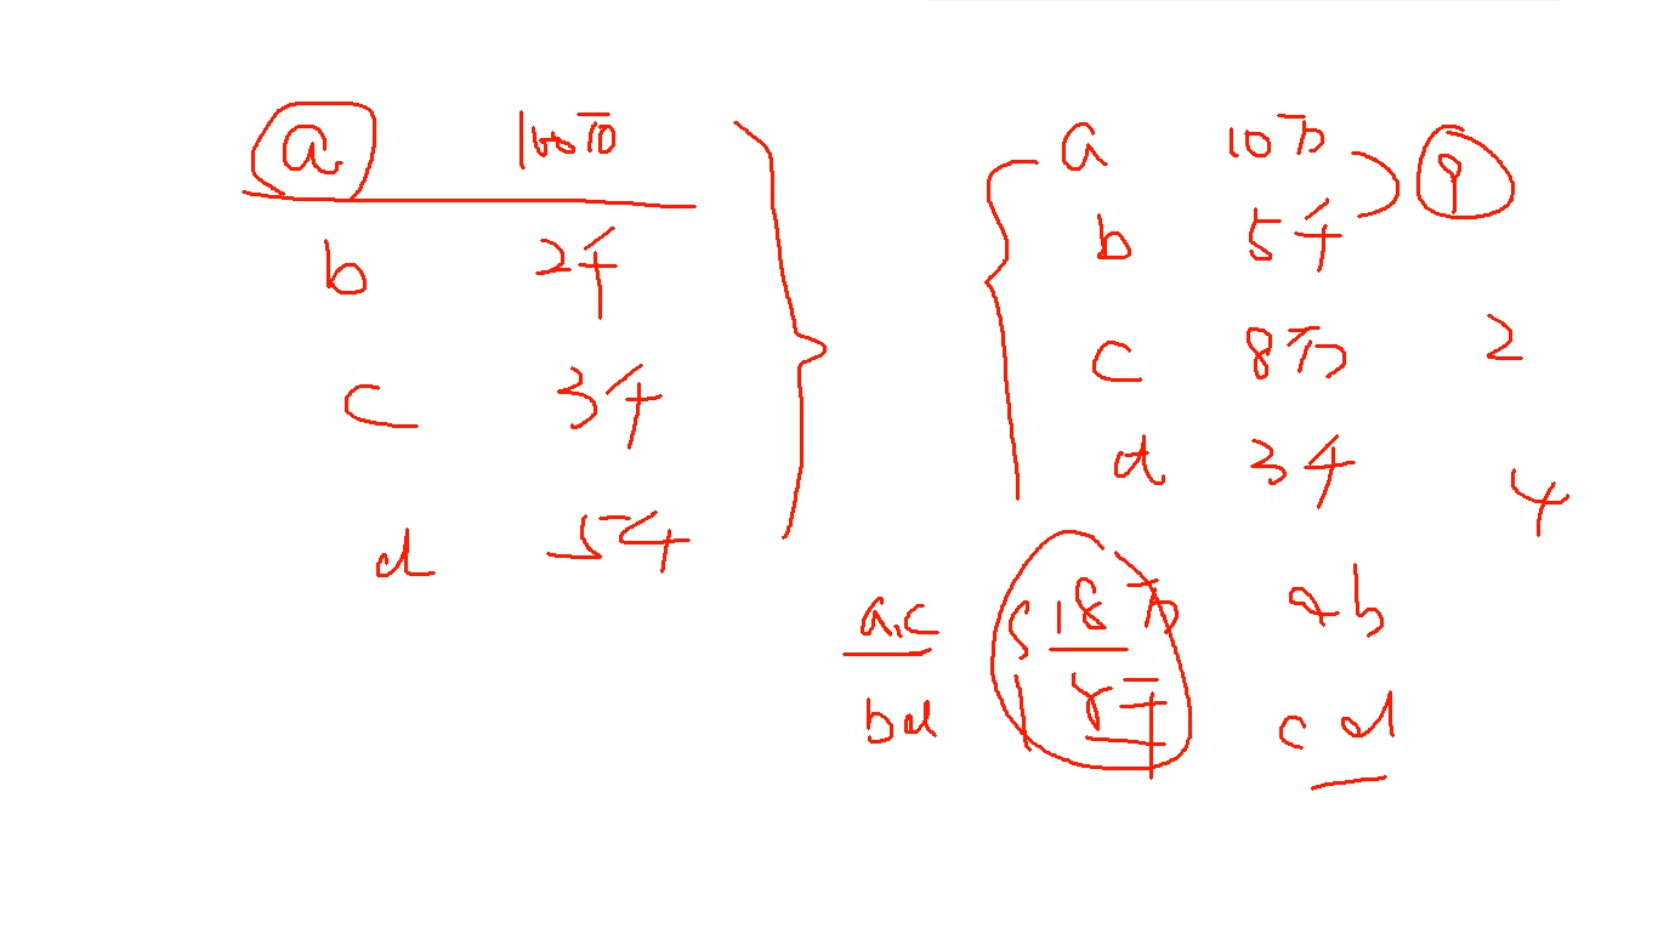 a 100万
b 2千
c 3千
d 5千
a 10万
b 5千
c 8万
d 3千
2
4
a,c 18万
bd 8千
ab
cd